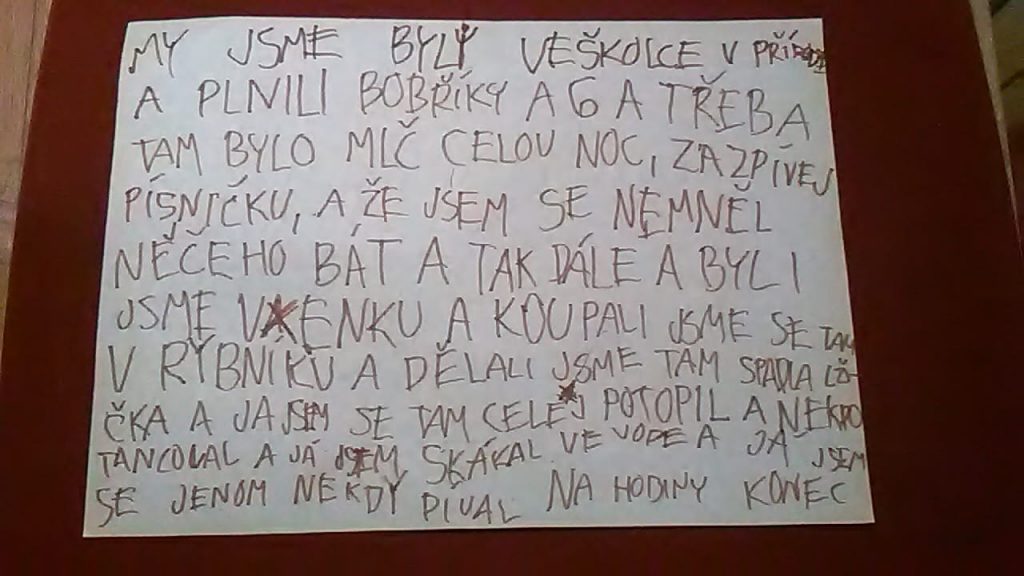 MY JSME BYLY VEŠKOLCE V PŘÍRODĚ
A PLNILI BOBŘÍKY A G A TŘEBA
TAM BYLO MLČ CELOU NOC, ZAZPÍVEJ
PÍSNIČKU, A ŽE JSEM SE NĚMNĚL
NĚČEHO BÁT A TAK DÁLE A BYLI
JSME VENKU A KOUPALI JSME SE TAM
V RYBNÍKU A DĚLALI JSME TAM SPADLA LŎ-
ČKA A JA JSEM SE TAM CELEJ POTOPIL A NEKDO
TANCOVAL A JÁ JSEM SKÁKAL VE VODE A JA JSEM
SE JENOM NEKDY PIVAL NA HODINY KONEC